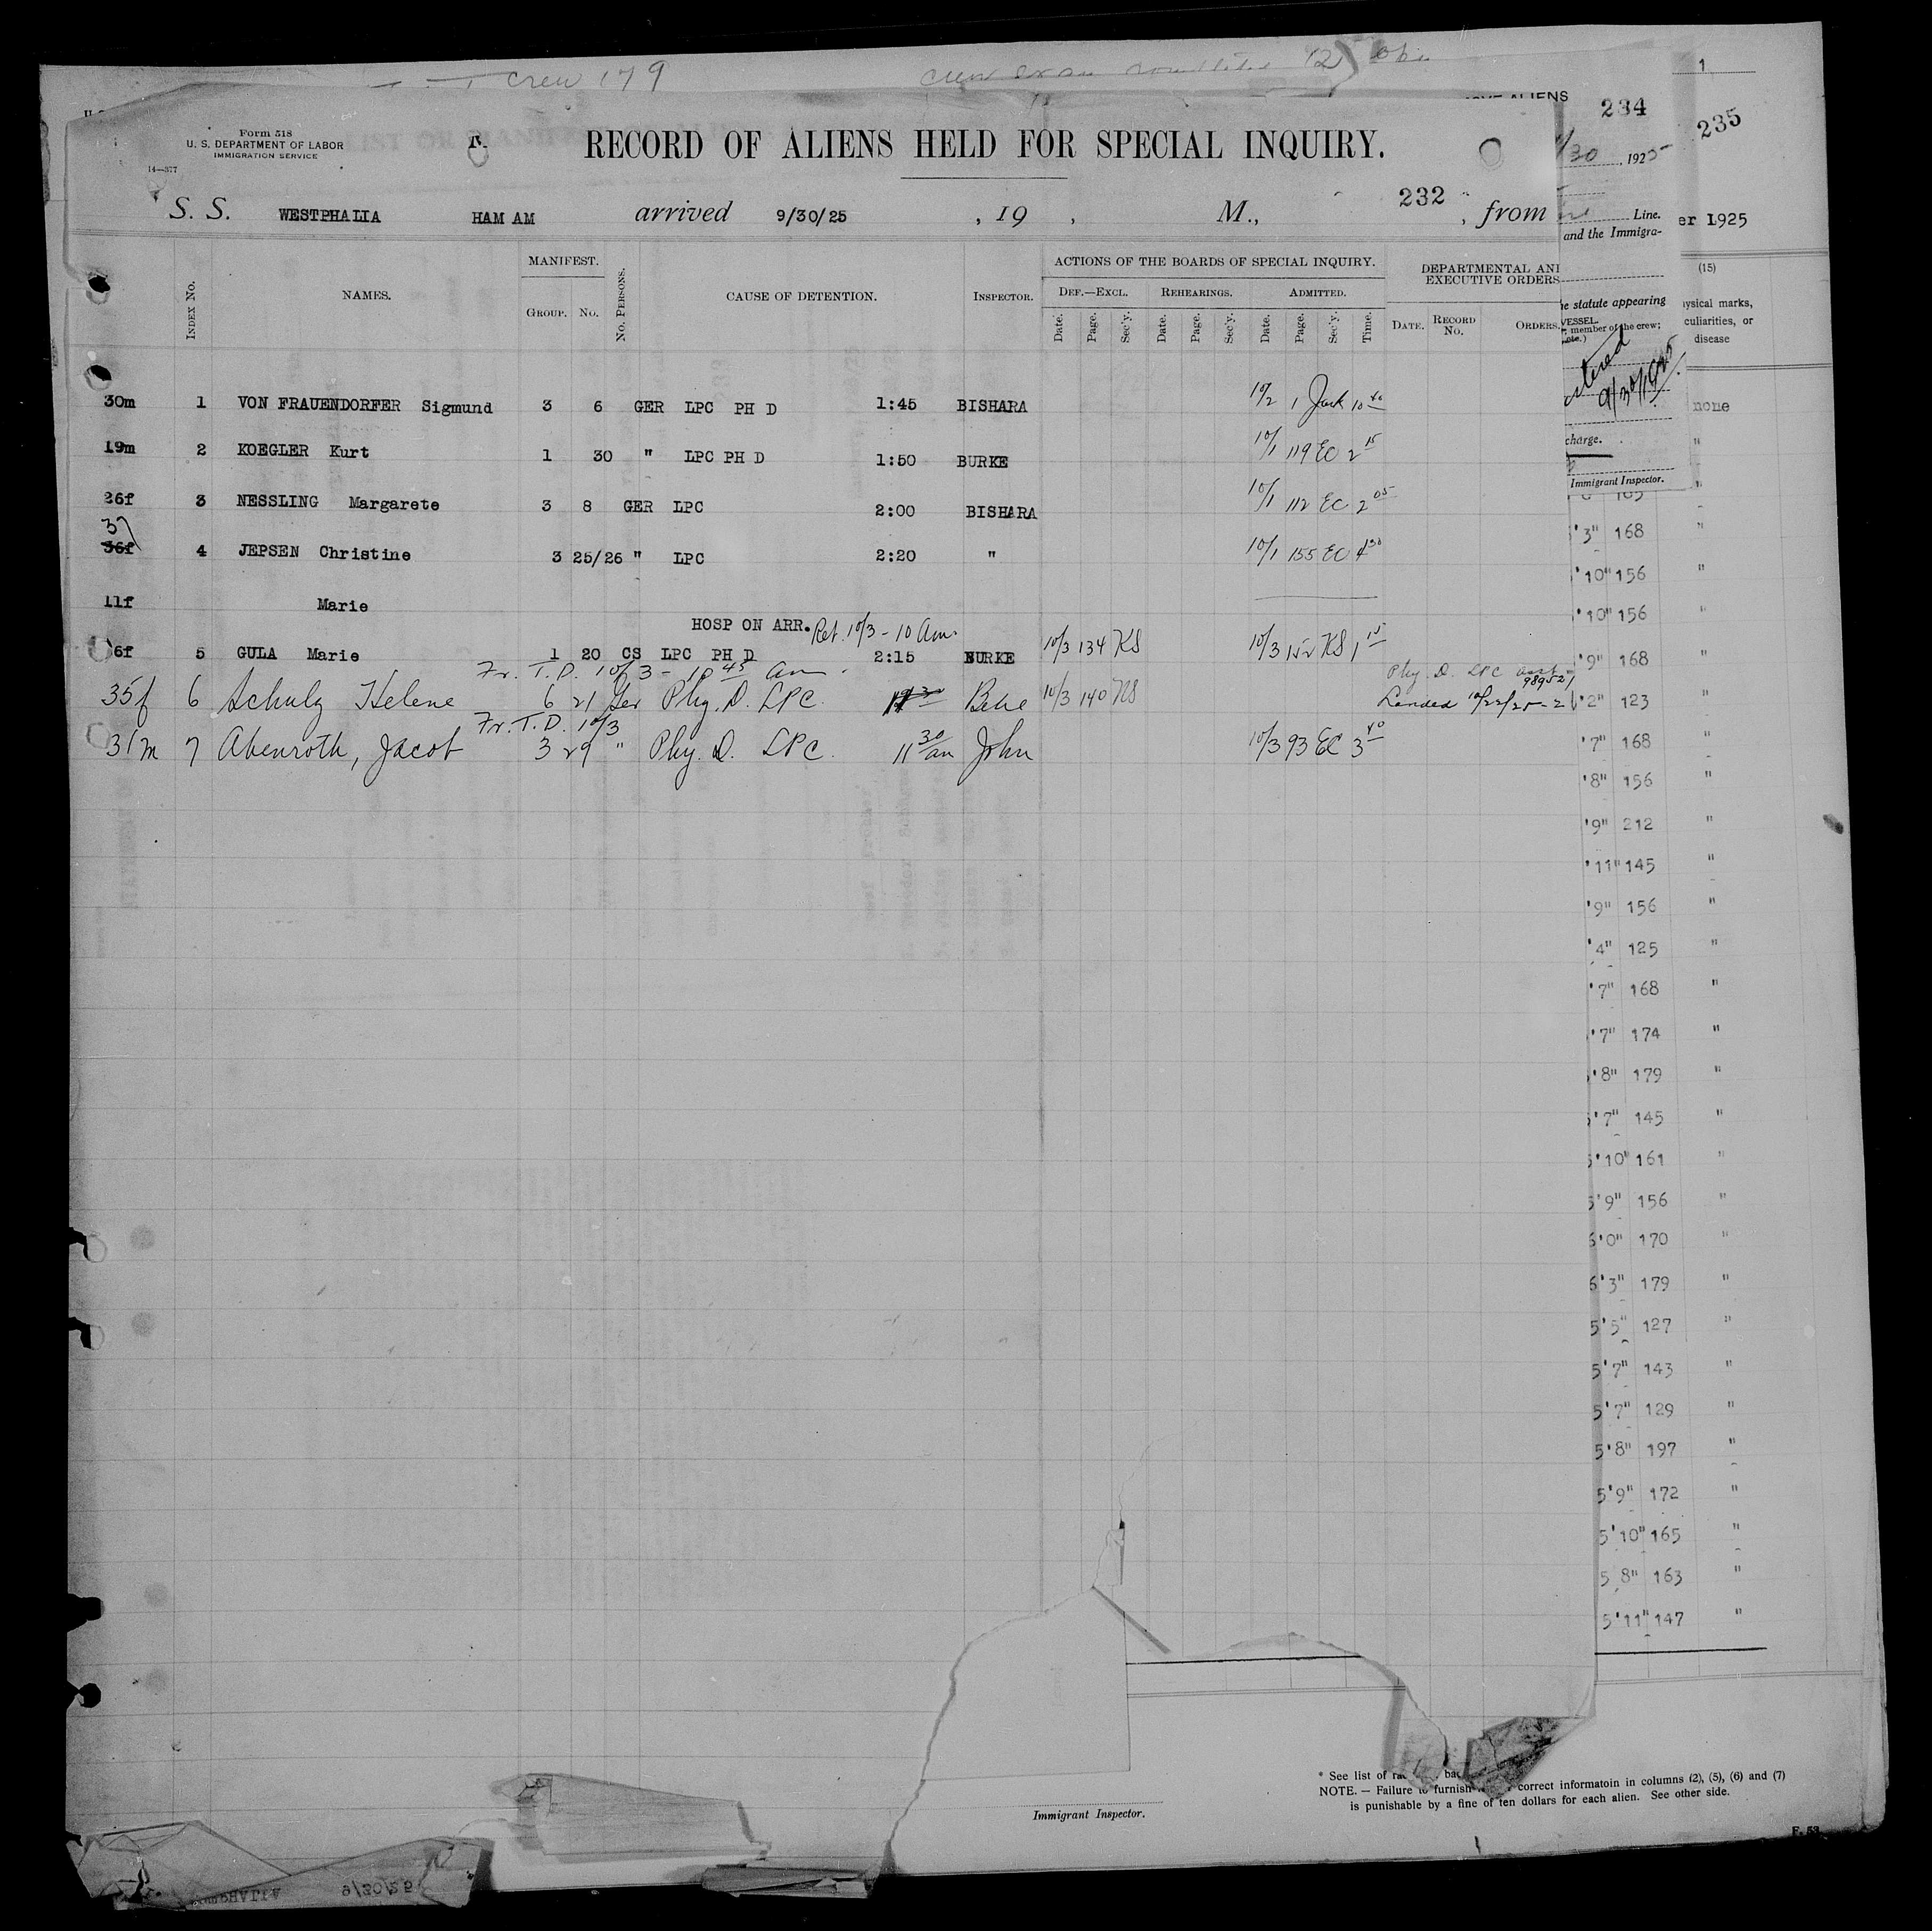 crew 179
1
ALIENS
234
235
Form 518
U. S. DEPARTMENT OF LABOR
IMMIGRATION SERVICE
14—377
RECORD OF ALIENS HELD FOR SPECIAL INQUIRY.
/30, 1925
S. S. WESTPHALIA HAM AM arrived 9/30/25 , 19 , M., 232 , from
Line.
and the Immigra-
er 1925
MANIFEST.
ACTIONS OF THE BOARDS OF SPECIAL INQUIRY.
DEPARTMENTAL AN
EXECUTIVE ORDERS
Index No. NAMES. Group. No. No. Persons. CAUSE OF DETENTION. Inspector.
Def.—Excl. Rehearings. Admitted.
Date. Page. Sec'y. Date. Page. Sec'y. Date. Page. Sec'y. Time. Date. Record No. Orders.
he statute appearing
VESSEL.
member of the crew;
(15)
ysical marks,
culiarities, or
disease
9/30/1925
none
charge.
Immigrant Inspector.
30m 1 VON FRAUENDORFER Sigmund 3 6 GER LPC PH D 1:45 BISHARA 10/2 1 Jack 10 40
19m 2 KOEGLER Kurt 1 30 " LPC PH D 1:50 BURKE 10/1 119 EC 2 15
26f 3 NESSLING Margarete 3 8 GER LPC 2:00 BISHARA 10/1 112 EC 2 05
37
36f 4 JEPSEN Christine 3 25/26 " LPC 2:20 " 10/1 155 EC 4 30
11f Marie
HOSP ON ARR. Ret. 10/3 - 10 Am.
6f 5 GULA Marie 1 20 CS LPC PH D 2:15 BURKE 10/3 134 KS 10/3 152 KS 1 15
Fr. T.D. 10/3 - 10 45 am Phy. D. LPC
98952/
35f 6 Schulz Helene 6 21 Ger Phy. D. LPC. 10/3 140 KS Landed 10/22/25
Fr. T.D. 10/3
31m 7 Abenroth, Jacob 3 29 " Phy. D. LPC. 11 30 am John 10/3 93 EC 3 40
'3" 168 "
'10" 156 "
'10" 156 "
'9" 168 "
'2" 123 "
'7" 168 "
'8" 156 "
'9" 212 "
'11" 145 "
'9" 156 "
'4" 125 "
'7" 168 "
'7" 174 "
'8" 179 "
'7" 145 "
'10" 161 "
5'9" 156 "
6'0" 170 "
6'3" 179 "
5'5" 127 "
5'7" 143 "
5'7" 129 "
5'8" 197 "
5'9" 172 "
5'10" 165 "
5'8" 163 "
5'11" 147 "
* See list of
NOTE. — Failure to furnish correct informatoin in columns (2), (5), (6) and (7)
is punishable by a fine of ten dollars for each alien. See other side.
Immigrant Inspector.
F. 53
9/30/25